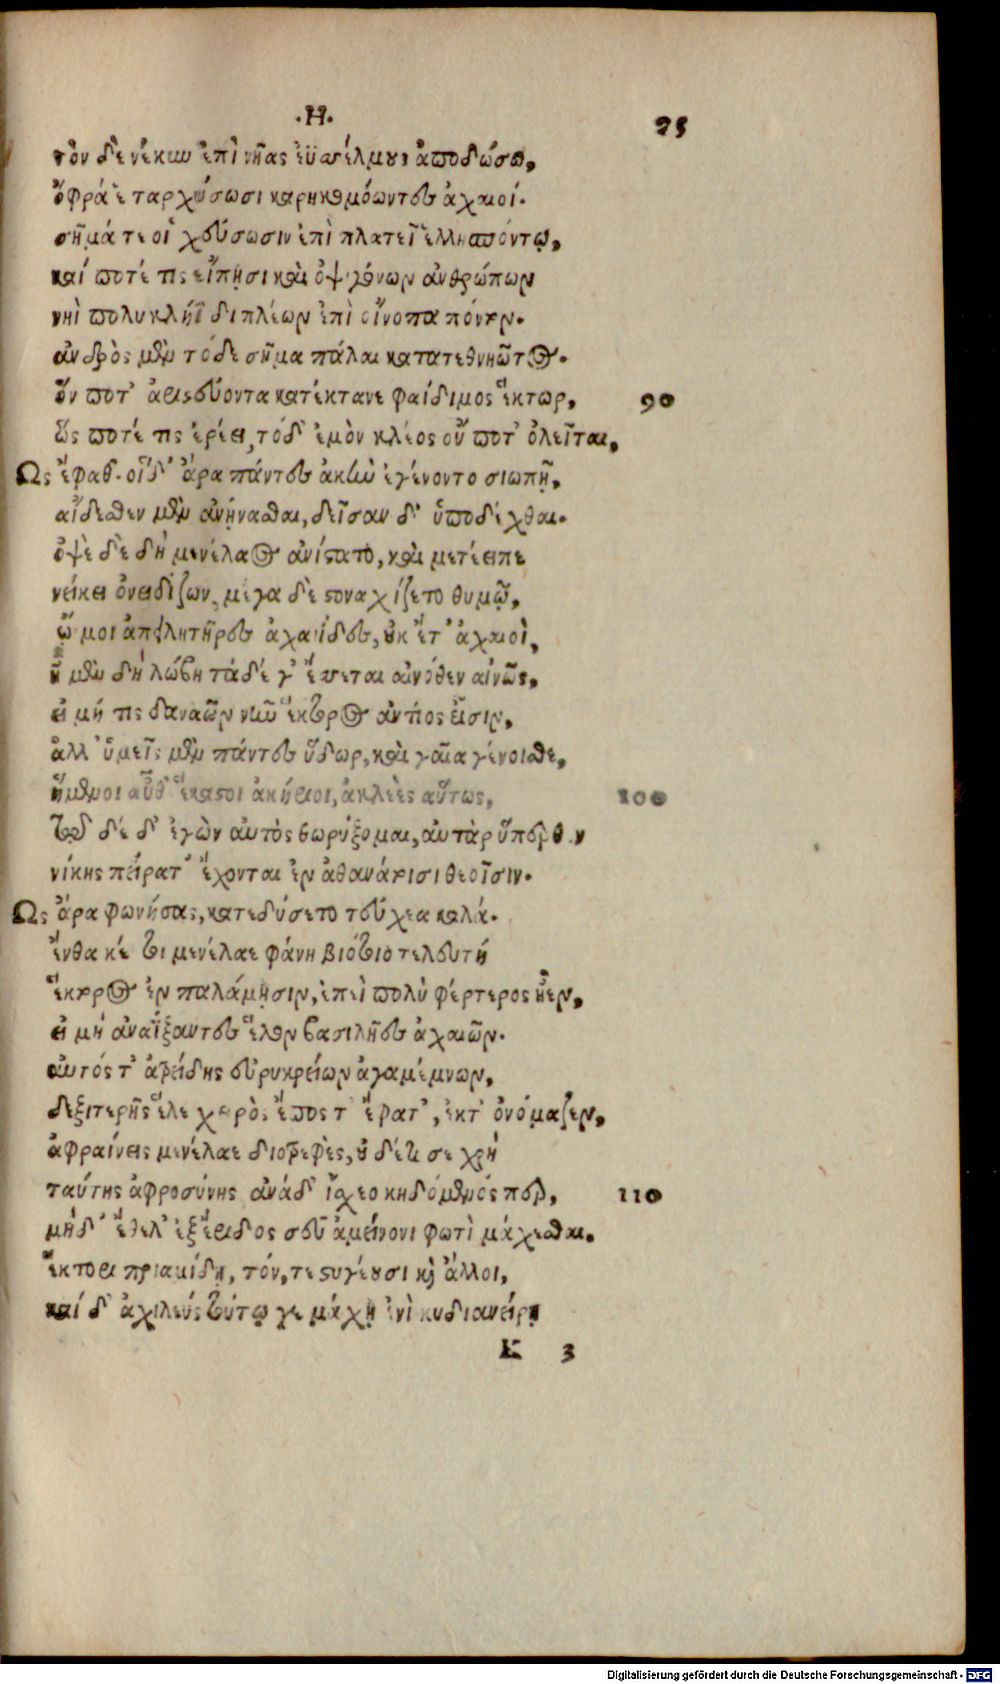 ·Η·
75
τὸν δὲ νέκυν ἐπὶ νῆας ἐϋσέλμους ἀποδώσω,
ὄφρά ἑ ταρχύσωσι καρηκομόωντες ἀχαιοί·
σῆμά τε οἱ χεύσωσιν ἐπὶ πλατεῖ ἑλλησπόντῳ,
καί ποτέ τις εἴπῃσι καὶ ὀψιγόνων ἀνθρώπων
νηῒ πολυκλήϊδι πλέων ἐπὶ οἴνοπα πόντον·
ἀνδρὸς μὲν τόδε σῆμα πάλαι κατατεθνηῶτος·
ὅν ποτ' ἀριστεύοντα κατέκτανε φαίδιμος ἕκτωρ, 90
ὥς ποτέ τις ἐρέει, τόδ' ἐμὸν κλέος οὔ ποτ' ὀλεῖται,
Ως ἔφαθ· οἵδ' ἄρα πάντες ἀκὴν ἐγένοντο σιωπῇ,
αἴδεσθεν μὲν ἀνήνασθαι, δεῖσαν δ' ὑποδέχθαι·
ὀψὲ δὲ δὴ μενέλαος ἀνίστατο, καὶ μετέειπε
νείκει ὀνειδίζων, μέγα δὲ στοναχίζετο θυμῷ,
ὤ μοι ἀπειλητῆρες ἀχαιΐδες, οὐκ ἔτ' ἀχαιοὶ,
ἦ μὲν δὴ λώβη τάδέ γ' ἔσσεται αἰνόθεν αἰνῶς,
εἰ μή τις δαναῶν νῦν ἕκτορος ἀντίος εἶσιν,
ἀλλ' ὑμεῖς μὲν πάντες ὕδωρ, καὶ γαῖα γένοισθε,
ἥμενοι αὖθ' ἕκαστοι ἀκήριοι, ἀκλεὲς αὔτως, 100
τῷ δέ δ' ἐγὼν αὐτὸς θωρήξομαι, αὐτὰρ ὕπερθεν
νίκης πείρατ' ἔχονται ἐν ἀθανάτοισι θεοῖσιν·
Ως ἄρα φωνήσας, κατεδύσετο τεύχεα καλά·
ἔνθα κέ τοι μενέλαε φάνη βιότοιο τελευτή
ἕκτορος ἐν παλάμῃσιν, ἐπεὶ πολὺ φέρτερος ἦεν,
εἰ μὴ ἀναΐξαντες ἕλον βασιλῆες ἀχαιῶν·
αὐτός τ' ἀτρείδης εὐρυκρείων ἀγαμέμνων,
δεξιτερῆς ἕλε χειρὸς ἔπος τ' ἔφατ', ἐκτ' ὀνόμαζεν,
ἀφραίνεις μενέλαε διοτρεφὲς, οὐδέτι σε χρὴ
ταύτης ἀφροσύνης ἀνάδ' ἴσχεο κηδόμενός περ, 110
μὴδ' ἔθελ' ἐξ ἔριδος σεῦ ἀμείνονι φωτὶ μάχεσθαι·
ἕκτορι πριαμίδῃ, τόν, τε στυγέουσι καὶ ἄλλοι,
καί δ' ἀχιλεύς τούτῳ γε μάχῃ ἐνὶ κυδιανείρῃ
K 3
Digitalisierung gefördert durch die Deutsche Forschungsgemeinschaft - DFG